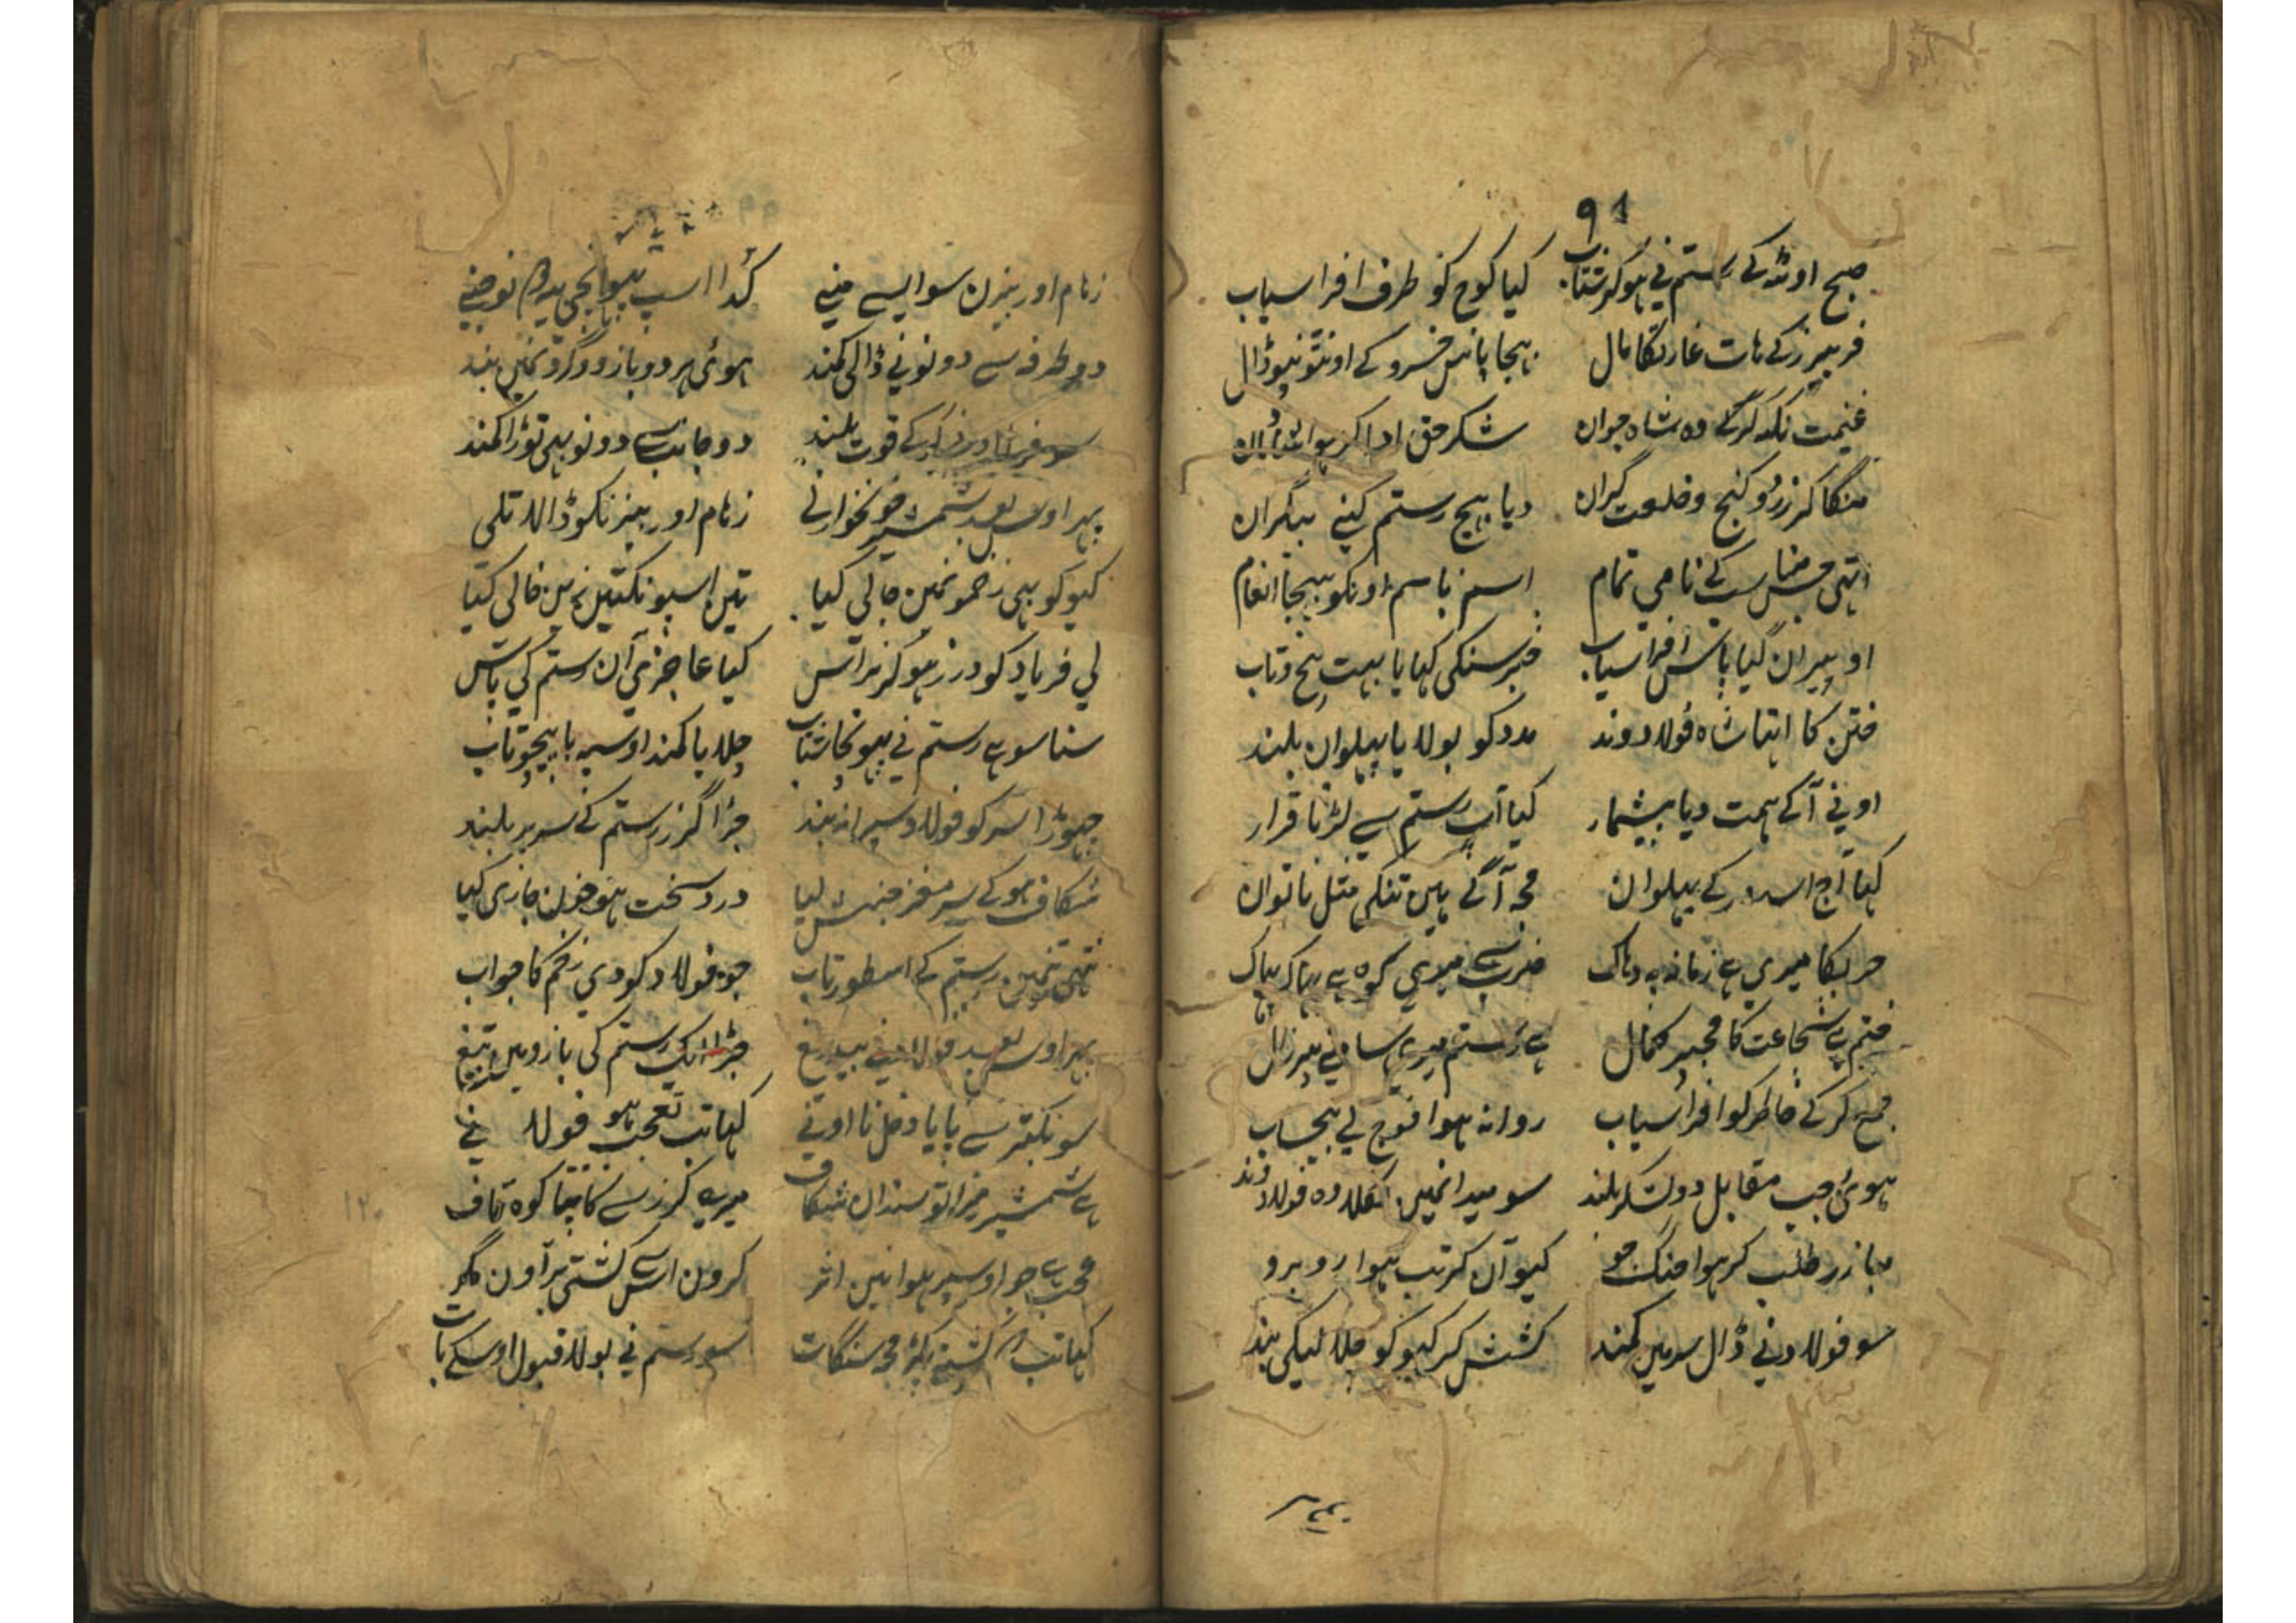 91
صبح اوٹھ کے رستم نی ہوکر شتاب کیا کوچ کو طرف افراسیاب
فریبرز کے ہات غارتکا مال بہیجا پاس خسرو کے اونٹو نپو ڈال
غنیمت نکہ کرکے وہ شاہ جوان شکر حق ادا کر ہوا
منگا کر زر و گنج و خلعت گران دیا بہیج رستم کنے بیگران
اتہی جس کے نامی تمام اسم باسم اونکو بہیجا انعام
او پیران گیا پاس افراسیاب خبر سنکی کہایا بہت پیچ و تاب
ختن کا اتہا شاہ فولادوند مدد کو بولایا پہلوان بلند
اونے آکے ہمت دیا بیشمار کیا آپ رستم سے لڑنا قرار
کہا آج اسدور کے پہلوان مجہ آگے ہیں تنکے مثل ناتوان
حربکا میری ہے زمانہ پہ دہاک ضرب سے میری کوہ ہے
ختم ہے شجاعت کا مجہپر کمال ہے رستم میرے سامنے پیر زال
جمع کر کے خاطر کو افراسیاب روانہ ہوا فوج لے بیحساب
ہوئی جب مقابل دو لشکر بلند سو میدانمیں نکلا وہ فولادوند
مبارز طلب کر ہوا جنگ جو گیو آن کر تب ہوا روبرو
سو فولاد نے ڈال سر میں کمند کشش کر گیو کو چلا لیکی بند
رہام اور بیزن سو ایسے منے کدا اسپ
دو طرف سے دونو نے ڈالی کمند ہوئی ہر دو بازو و گردنمیں بند
سو فولاد کے قوت بلند دو جانب سے دونو بہی توڑا کمند
پہر اوس بعد شمشیر خونخوار نے رہام اور بیزنکو ڈالا تلی
گیو کو بہی زخمونمیں جالی کیا تین اسپونکتیں زین خالی کیا
لی فریاد گودرز ہوکر ہراس کیا عاجزی آن رستم کی پاس
سنا سو ہے رستم نی پہونچا شتاب چلایا کمند اوسپہ با پیچ و تاب
چہوڑا سر کو فولاد سپرانہ بند جڑا گرز رستم کے سر پر بلند
شگاف ہوکے سر مغز جنبش لیا درد سخت ہو خون جاری کیا
نتہی تنمیں رستم کے اسطور تاب جو فولاد کو دی زخم کا جواب
پہر اوس بعد فولاد نے بیدریغ جڑا ایک رستم کی بازو میں تیغ
سو بکتر سے پایا دخل نا اونے کہا تب تعجب ہو فولاد نے
ہے شمشیر میرا تو سندان شگاف میری گرز سے کانپتا کوہ قاف
عجب ہے جو اوسپر ہوا نیں اثر کرون اس سے کشتی پر آون مگر
کہا تب کہ کشتی پکڑ مجہ سنگات سو رستم نے بولا قبول اوسکے بات